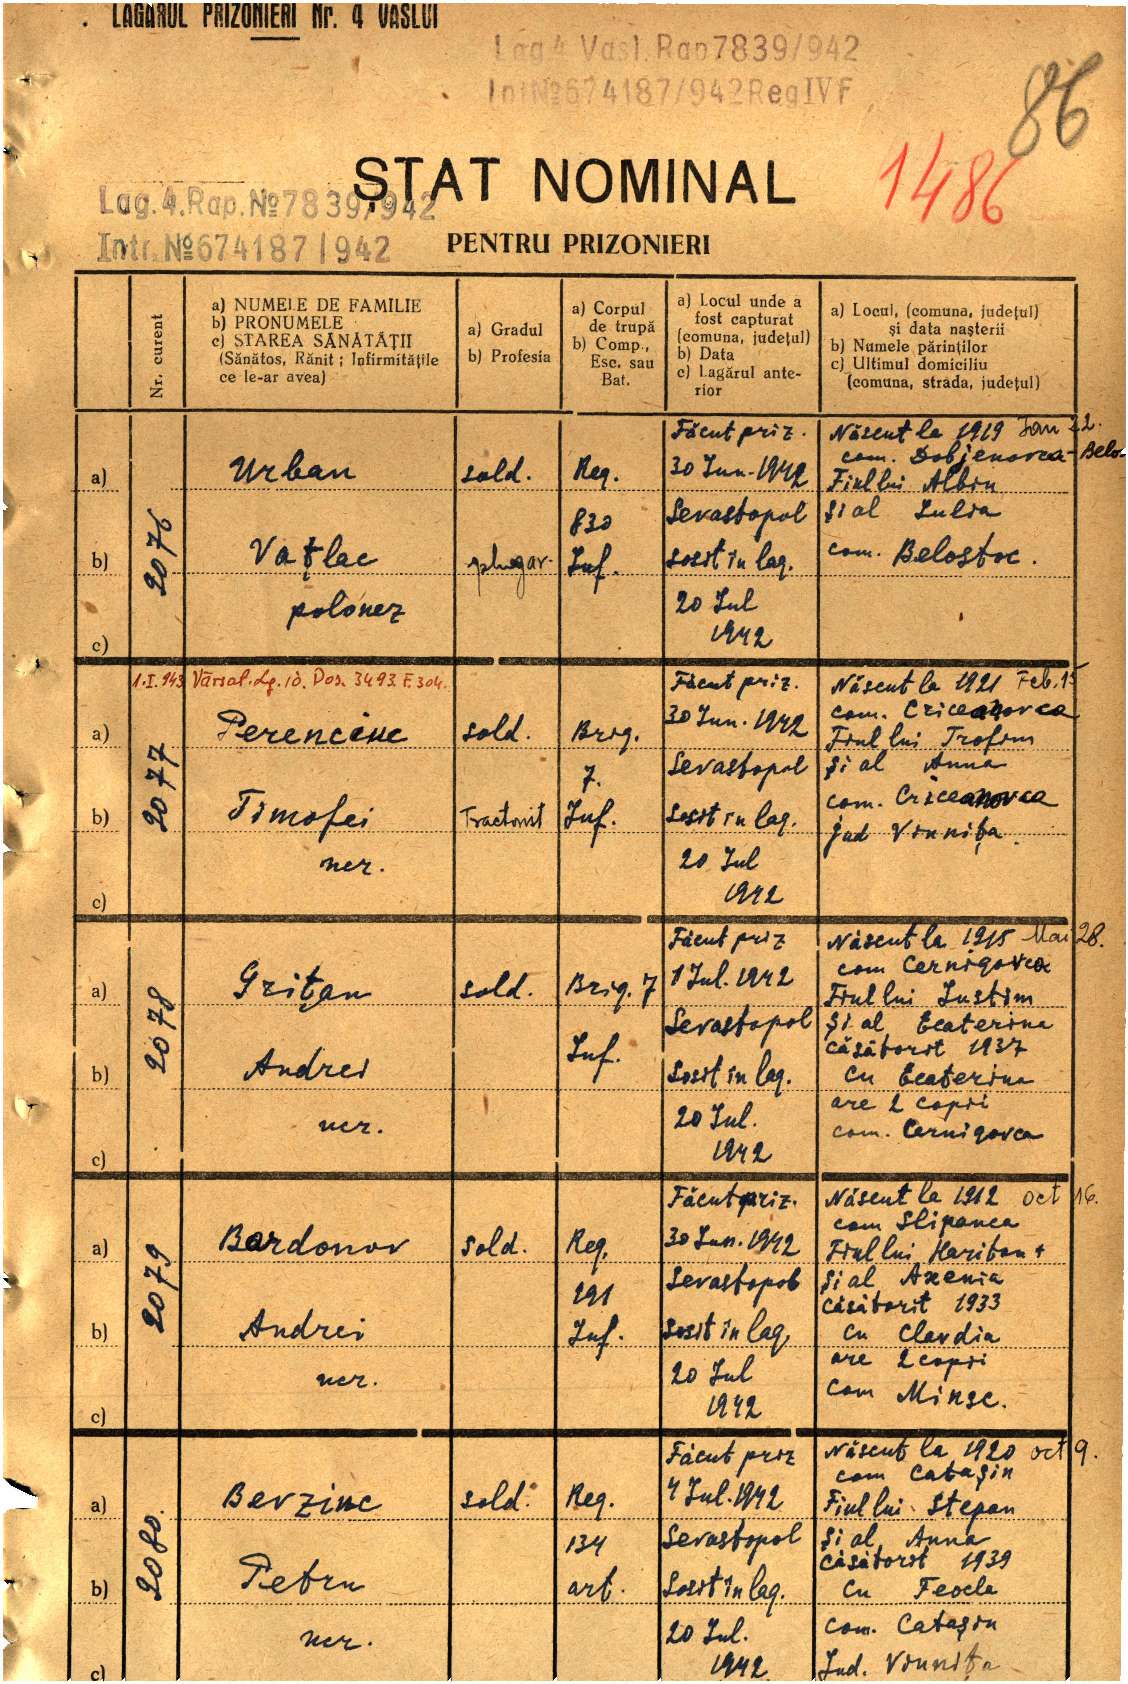 LAGĂRUL PRIZONIERI Nr. 4 VASLUI
Lag 4 Vasl. Rap 7839/942
Int № 674187/942 Reg IV F
86
1486
ȘTAT NOMINAL
Lag. 4. Rap. № 7839/942
Intr. № 674187/942
PENTRU PRIZONIERI
Nr. curent
a) NUMELE DE FAMILIE
b) PRONUMELE
c) STAREA SĂNĂTĂȚII
(Sănătos, Rănit; Infirmitățile
ce le-ar avea)
a) Gradul
b) Profesia
a) Corpul
de trupă
b) Comp.,
Esc. sau
Bat.
a) Locul unde a
fost capturat
(comuna, județul)
b) Data
c) Lagărul ante-
rior
a) Locul, (comuna, județul)
și data nașterii
b) Numele părinților
c) Ultimul domiciliu
(comuna, strada, județul)
a)
b)
c)
2076
Urban
Vațlac
polonez
sold.
plugar
Reg.
830
Inf.
Făcut priz.
30 Iun. 1942
Sevastopol
Sosit în lag.
20 Iul
1942
Născut la 1919 Ian 22.
com. Dobjenovca-Belo-
Fiul lui Albin
și al Iulia
com. Belostoc.
1.I.943 Vărsat. Lg. 10. Dos. 3493 F. 304.
a)
b)
c)
2077
Perencinc
Timofei
ner.
sold.
Tractorist
Brig.
7.
Inf.
Făcut priz.
30 Iun. 1942
Sevastopol
Sosit în lag.
20 Iul
1942
Născut la 1921 Feb. 15
com. Criceanovca
Fiul lui Trofim
și al Anna
com. Criceanovca
jud Vinnița.
a)
b)
c)
2078
Grițan
Andrei
ner.
sold.
Brig. 7
Inf.
Făcut priz
1 Iul. 1942
Sevastopol
Sosit în lag.
20 Iul.
1942
Născut la 1915 Mai 28.
com Cernigovca
Fiul lui Iustim
și al Ecaterina
căsătorit 1937
cu Ecaterina
are 2 copii
com. Cernigovca
a)
b)
c)
2079
Bordonov
Andrei
ner.
sold.
Reg.
291
Inf.
Făcut priz.
30 Iun. 1942
Sevastopol
Sosit în lag.
20 Iul
1942
Născut la 1912 oct 16.
com Slipanca
Fiul lui Hariton +
și al Axenia
căsătorit 1933
cu Clavdia
are 2 copii
com Minsc.
a)
b)
c)
2080.
Berzinc
Petru
ner.
sold.
Reg.
134
art.
Făcut priz
4 Iul. 1942
Sevastopol
Sosit în lag.
20 Iul.
1942
Născut la 1920 oct 9.
com Catașin
Fiul lui Stepan
și al Anna
căsătorit 1939
cu Feocla
com. Catașin
Jud. Vinnița